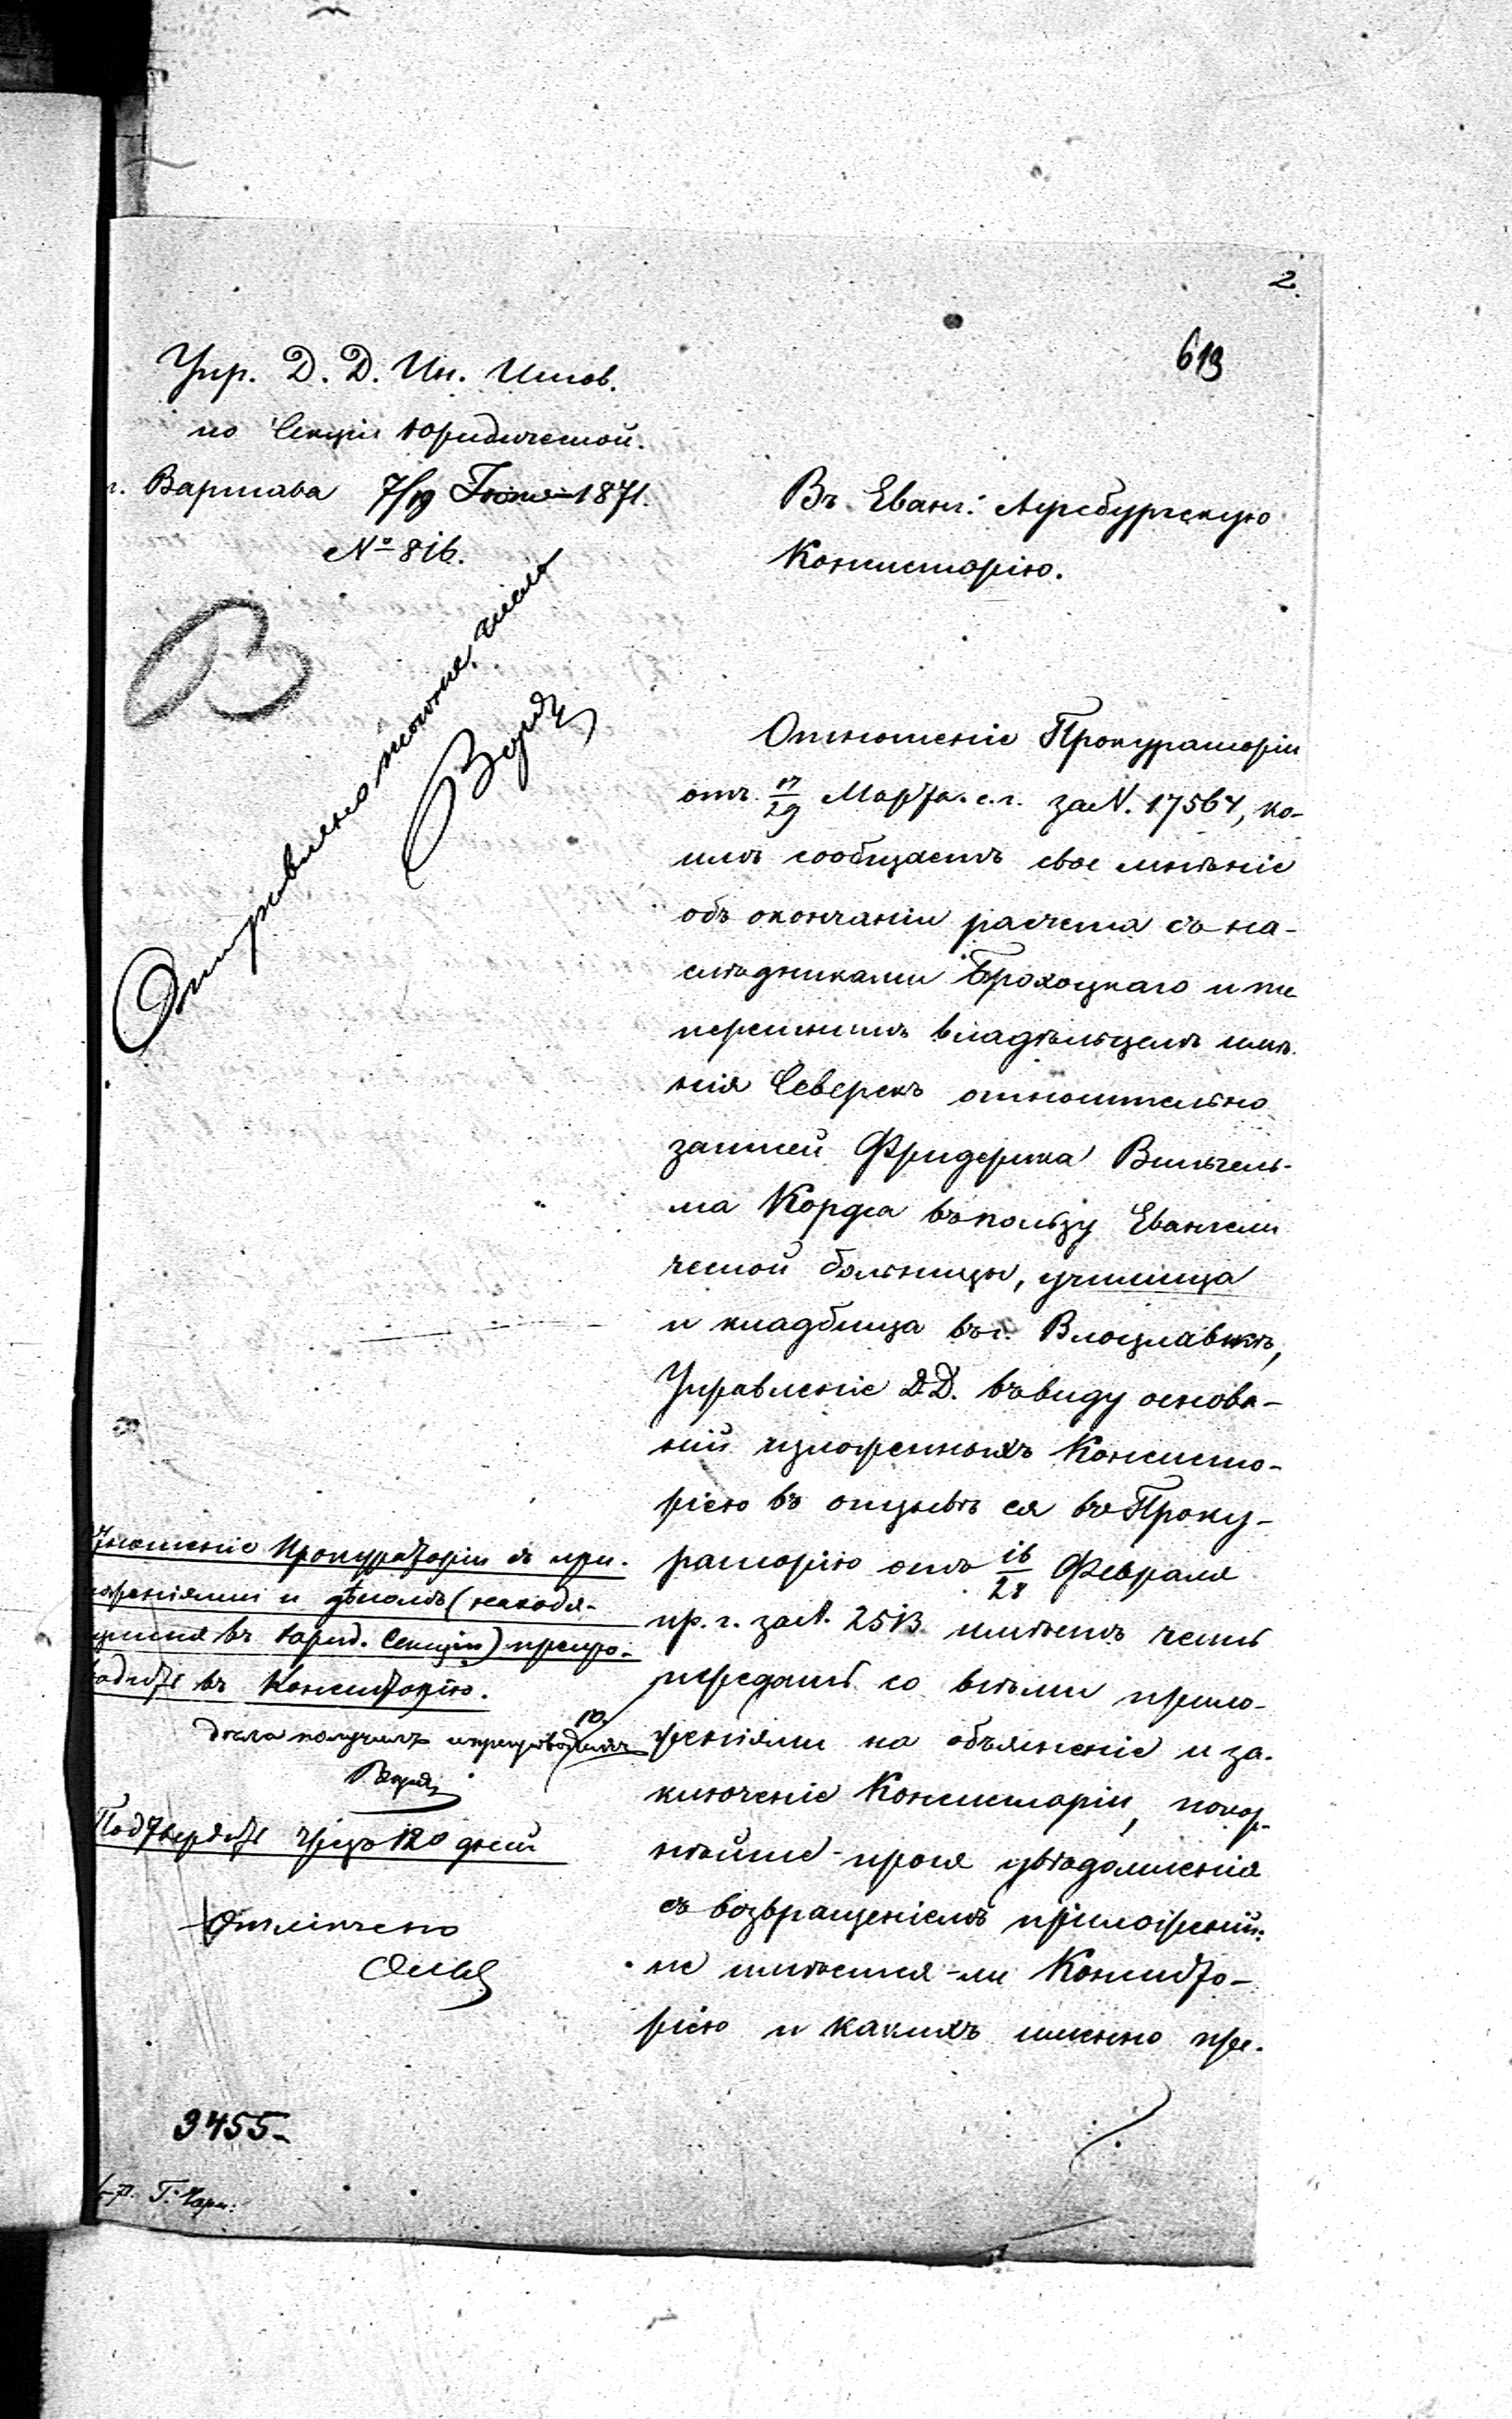 2.
619
Упр. Д. Д. Ин. Испов.
по Секціи Юридической.
г. Варшава 7/19 Іюня 1871.
№ 816.
Въ Еванг: Аугсбургскую
Консисторію.
Отправлено того же числа
Отношеніе Прокураторіи
отъ 17/29 Марта с. г. за N. 17564, ко-
имъ сообщаетъ свое мнѣніе
объ окончаніи расчета съ на-
слѣдниками Брохоцкаго и те
перешнимъ владѣльцемъ имѣ
нія Северскъ относительно
записей Фридерика Вильгель-
ма Кордса въ пользу Евангели
ческой больницы, училища
и кладбища въ г. Влоцлавкѣ,
Управленіе Д.Д. въ виду основа-
ній изложенныхъ Консисто-
ріею въ отзывѣ ея въ Проку-
раторію отъ 16/28 Февраля
пр. г. за N. 2513 имѣетъ честь
передать со всѣми прило-
женіями на объясненіе и за-
ключеніе Консисторіи, покор-
нѣйше прося увѣдомленія
съ возвращеніемъ приложеній:
не имѣется-ли Консисто-
ріею и какихъ именно пре-
Отношеніе Прокураторіи съ при-
ложеніями и дѣломъ (находя-
щимся въ Юрид. Секціи) препро-
водить въ Консисторію.
Дѣла получилъ и препроводилъ
Подтвердить чрезъ 120 дней
Отмѣчено
3455